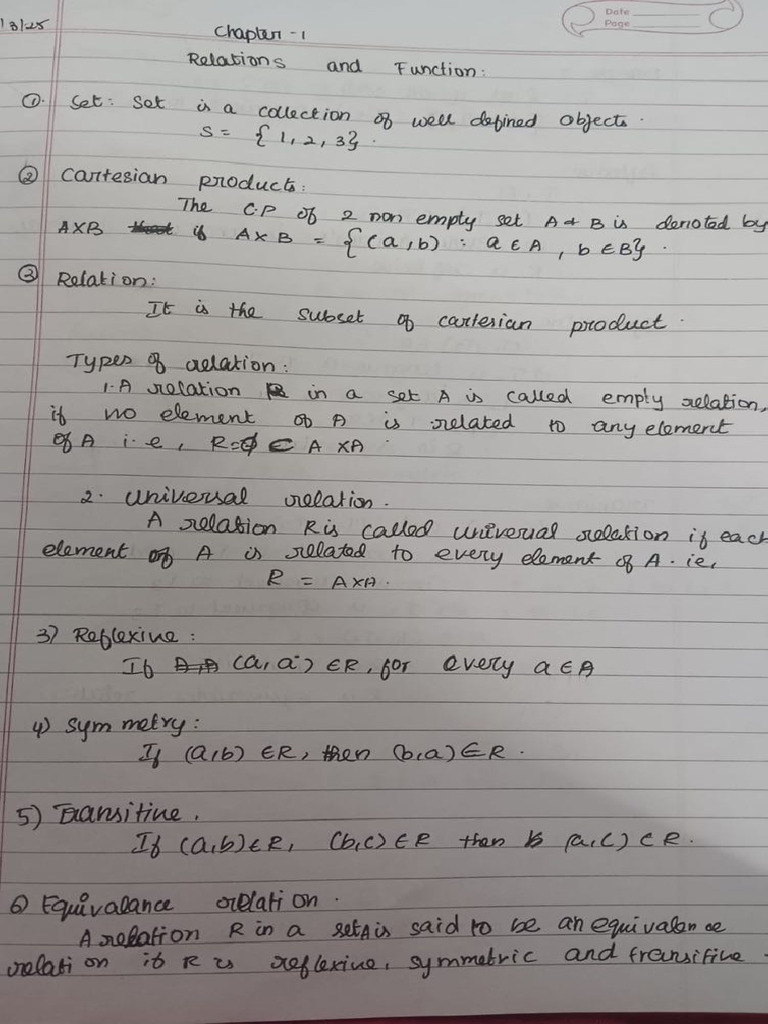 13/25
Date
Page
Chapter - 1
Relations and Function:
①. Set: Set is a collection of well defined objects.
S = {1, 2, 3}.
② Cartesian products:
The C.P of 2 non empty set A & B is denoted by
AXB if A X B = {(a, b) : a ∈ A, b ∈ B}.
③ Relation:
It is the subset of cartesian product.
Types of relation:
1. A relation R in a set A is called empty relation,
if no element of A is related to any element
of A i.e, R=ϕ ⊂ A XA
2. Universal relation.
A relation R is called universal relation if each
element of A is related to every element of A. ie,
R = AXA.
3) Reflexive:
If (a, a) ∈R, for every a ∈ A
4) Symmetry:
If (a,b) ∈R, then (b,a) ∈ R.
5) Transitive.
If (a,b) ∈ R, (b,c) ∈ R then (a,c) ∈ R.
6) Equivalance relation.
A relation R in a set A is said to be an equivalance
relation if R is reflexive, symmetric and transitive.